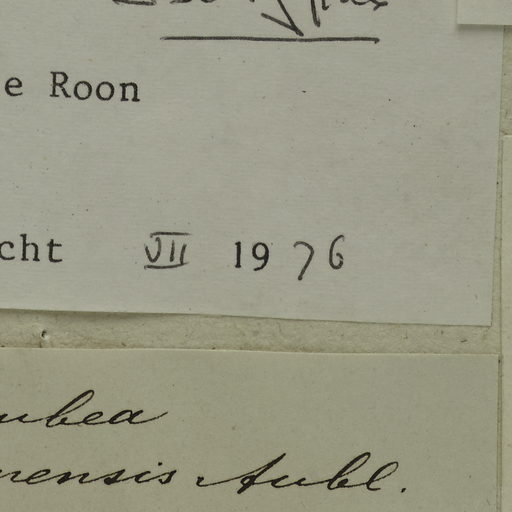 e Roon
cht VII 1976
ubea
nensis Aubl.